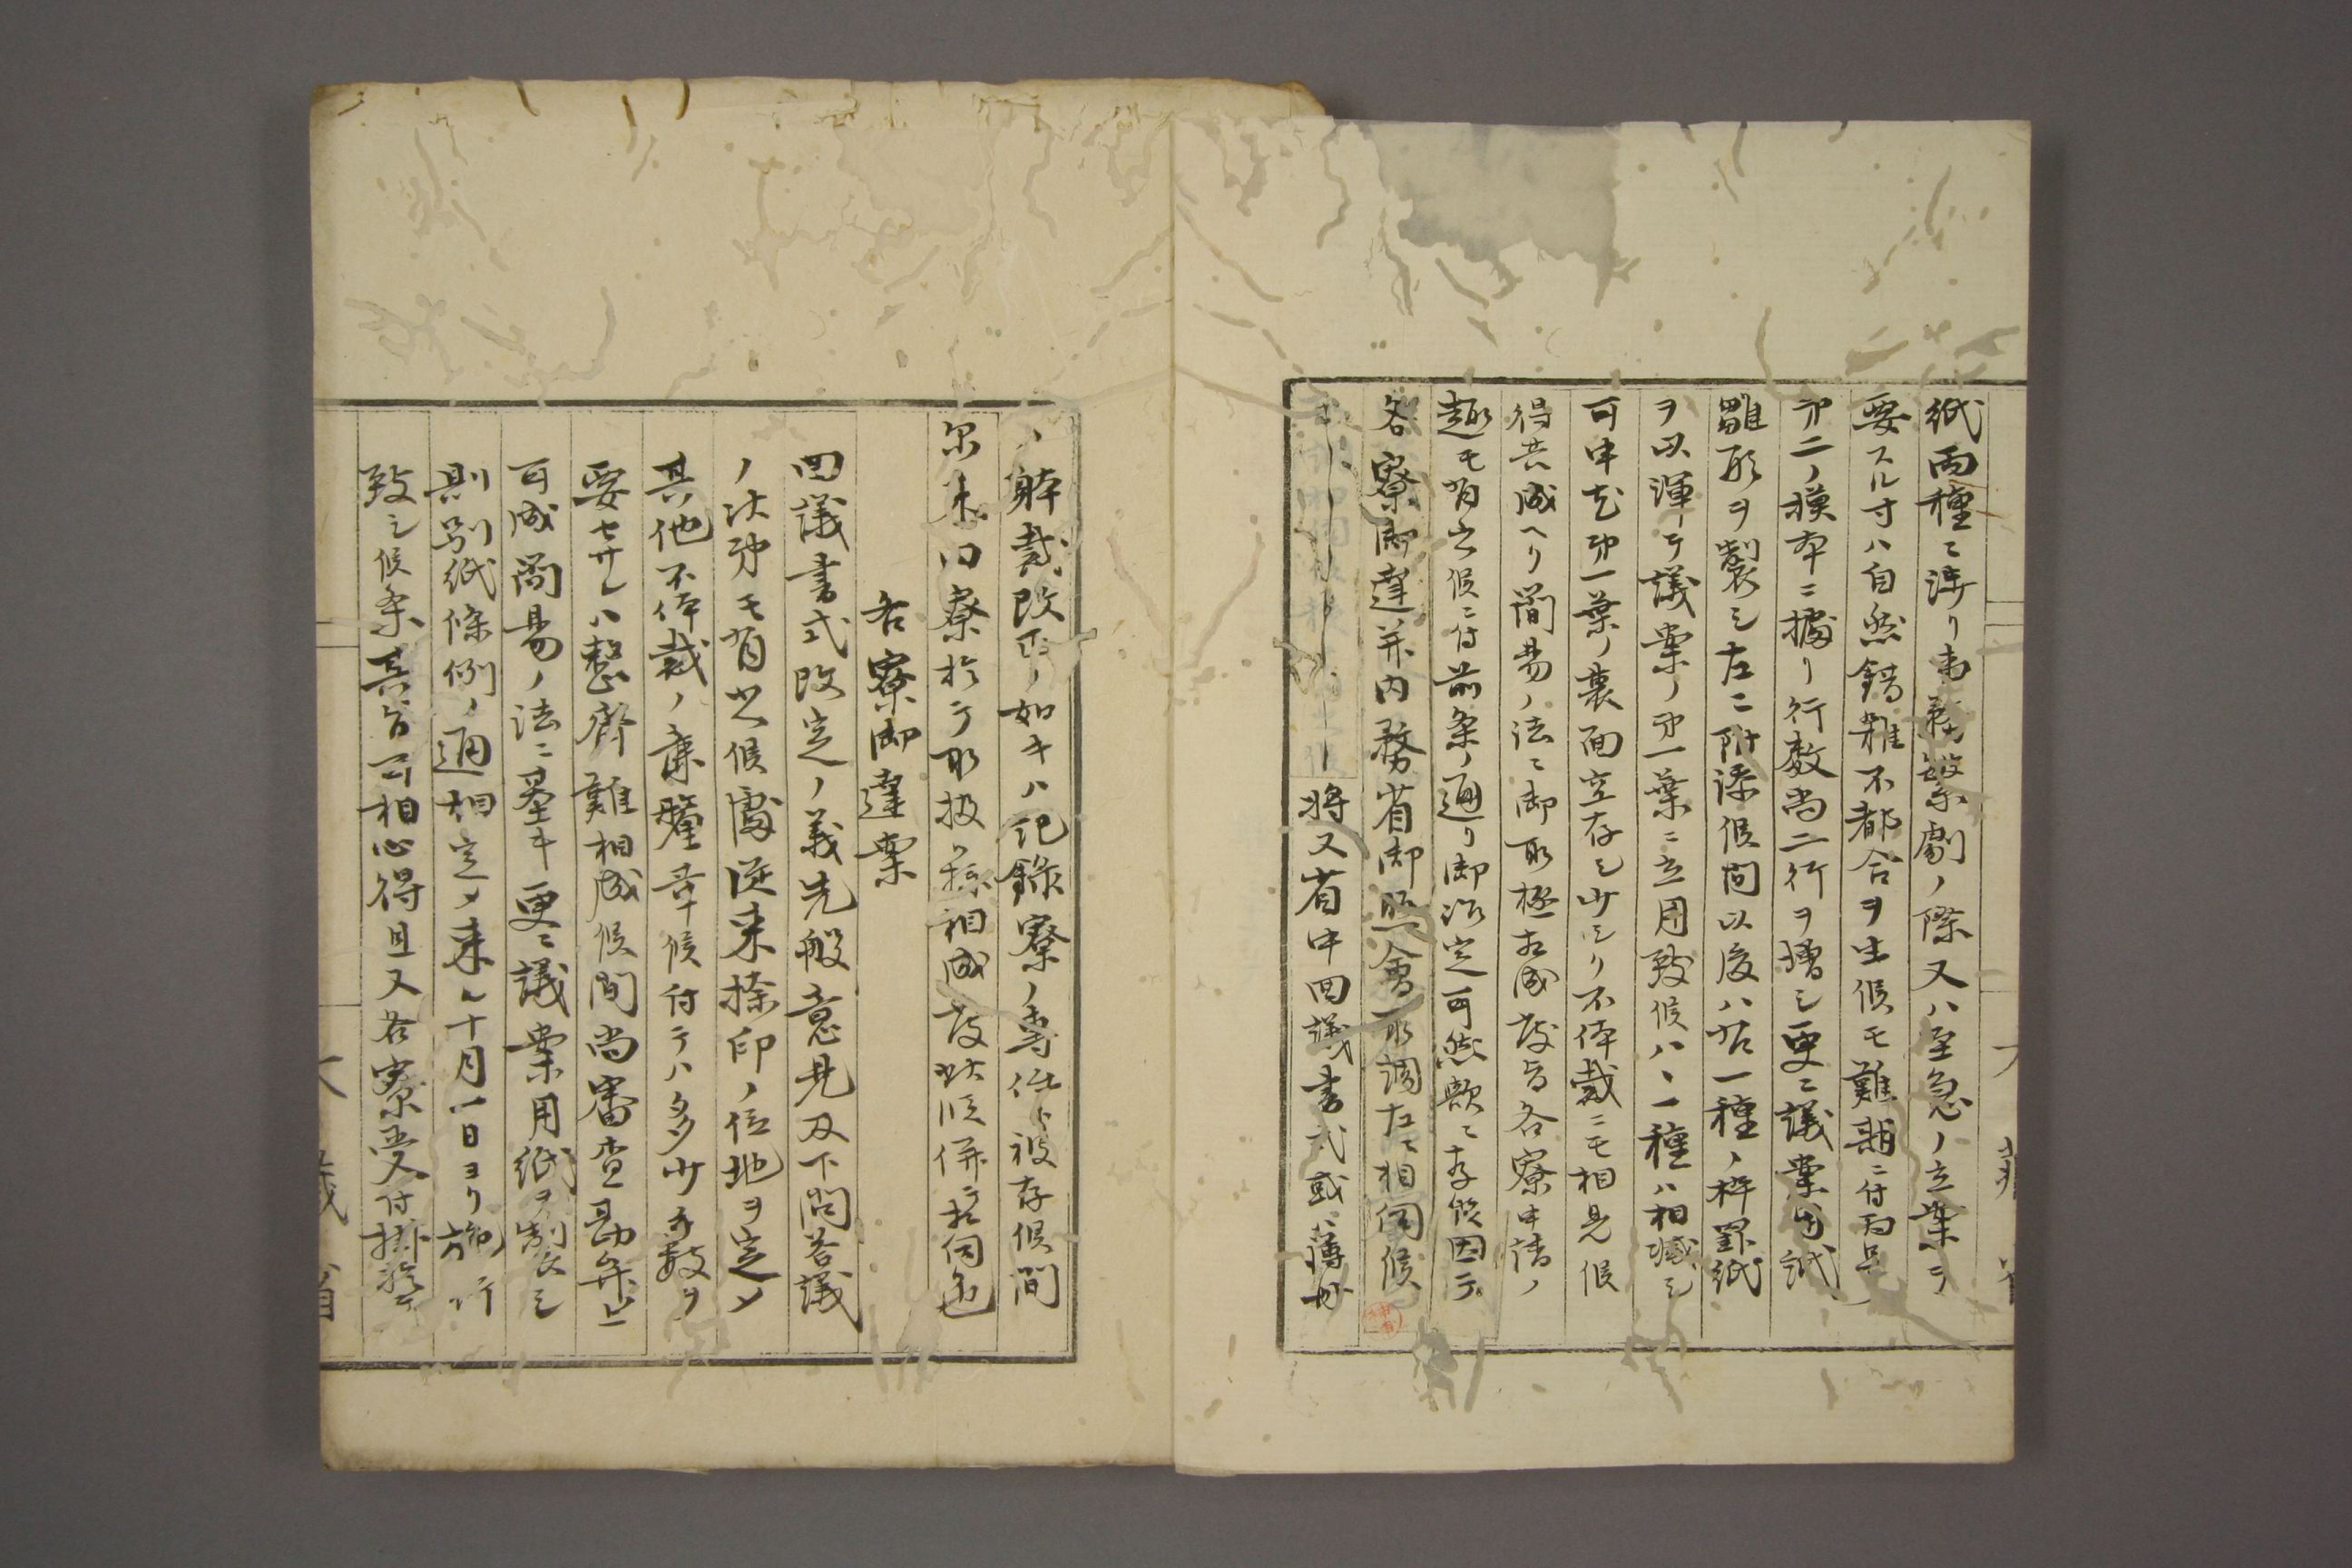 紙両種ニ渉リ事務繁劇ノ際又ハ至急ノ立案ヲ
要スル寸ハ自然錯雑不都合ヲ生候モ難計ニ付両
㐧二ノ模本ニ據リ行数尚二行ヲ増シ更ニ議案用紙
雛形ヲ製シ左ニ附添候間以後ハ右一種ノ枠罫紙
ヲ以渾テ議案ノ㐧一葉ニ立用致候ハヽ一種ハ相減シ
可申尤㐧一葉ノ裏面空存シ少シク不体裁ニモ相見候
得共成ヘク簡易ノ法ニ御取極相成度旨各寮申請ノ
趣モ有之候ニ付前条ノ通リ御治定可然歟ニ存候因テ
各寮御達并内務省御照会取調左ニ相伺候
将又省中回議書式或ハ薄
ノ躰裁改正ノ如キハ記録寮ノ専任ト被存候間
爾来同寮於テ取扱候様相成度此段併テ相伺也
各寮御達案
回議書式改定ノ義先般意見及下問答議
ノ次第モ有之候處従来捺印ノ位地ヲ定メ
其他不体裁ノ廉釐革候付テハ多少手数ヲ
要セサレハ整齊難相成候間尚審査勘弁ニ
可成簡易ノ法ニ基キ更ニ議案用紙ヲ製シ
則別紙條例ノ通相定メ来ル十月一日ヨリ施行
致シ候条其旨可相心得且又各寮受付掛ニテ